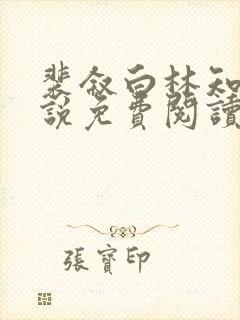 裴叙白林知
說免費閱讀
張寶印